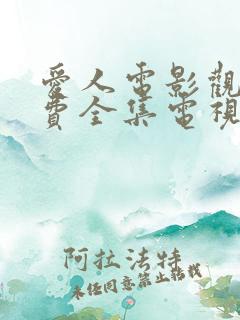 愛人電影觀
費全集電視
阿拉法特
未经同意禁止转载